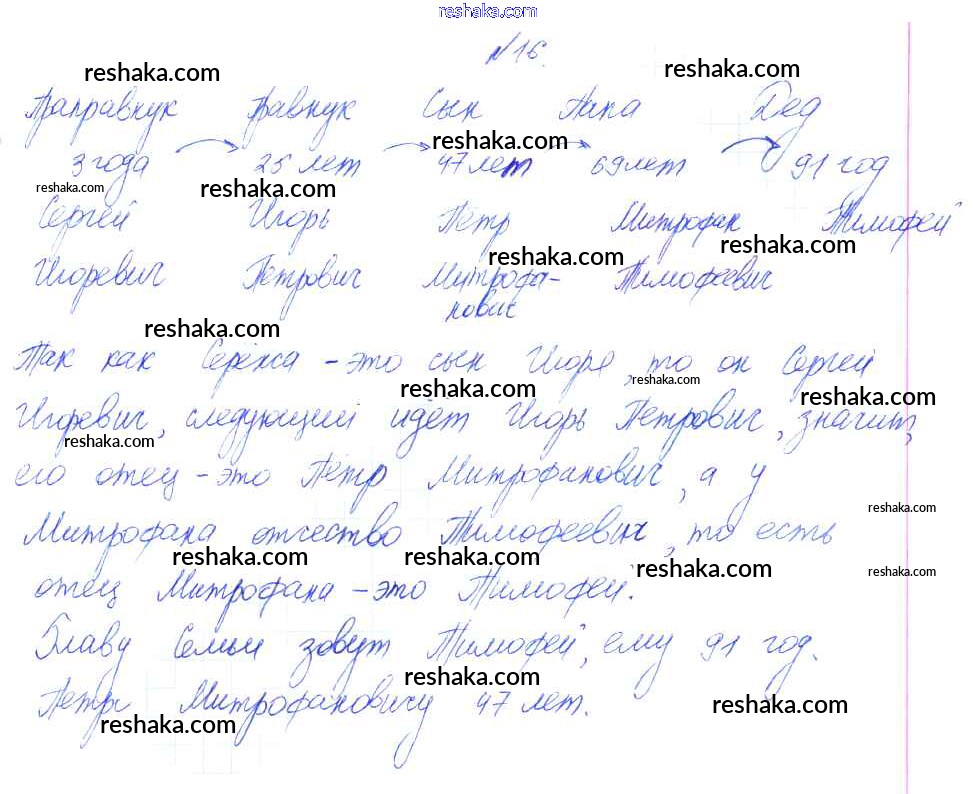 reshaka.com
№16.
reshaka.com reshaka.com
Праправнук Правнук Сын Папа Дед
reshaka.com
3 года 25 лет 47 лет 69 лет 91 год
reshaka.com reshaka.com
Сергей Игорь Пётр Митрофан Тимофей
reshaka.com reshaka.com
Игоревич Петрович Митрофа- Тимофеевич
нович
reshaka.com
Так как Серёжа – это сын Игоря, то он Сергей
reshaka.com reshaka.com reshaka.com
Игоревич, следующий идёт Игорь Петрович, значит,
reshaka.com
его отец – это Пётр Митрофанович, а у
reshaka.com
Митрофана отчество Тимофеевич, то есть
reshaka.com reshaka.com reshaka.com reshaka.com
отец Митрофана – это Тимофей.
Главу семьи зовут Тимофей, ему 91 год.
reshaka.com
Петру Митрофановичу 47 лет.
reshaka.com reshaka.com